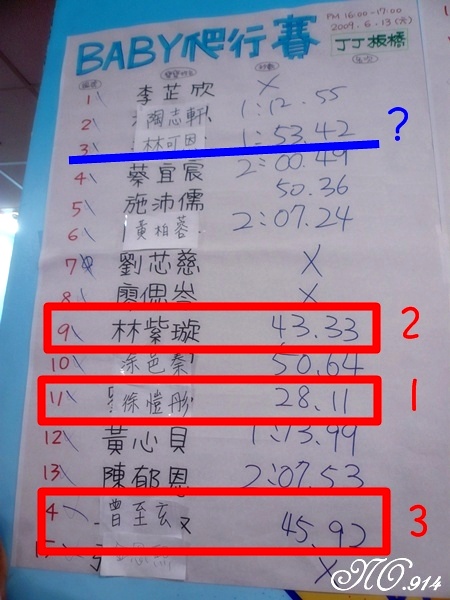 PM 16:00-17:00
2009.6.13(六)
BABY爬行賽
丁丁板橋
1 李芷欣 X
2 陶志軒 1:12.55
3 林可恩 1:53.42
?
4 蔡宜宸 2:00.49
5 施沛儒 50.36
6 黃柏蓉 2:07.24
7 劉芯慈 X
8 廖偲岑 X
9 林紫璇 43.33 2
10 涂色秦 50.64
11 徐愷彤 28.11 1
12 黃心貝 1:13.99
13 陳郁恩 2:07.53
4 曾至玄 45.92 3
X
NO.914